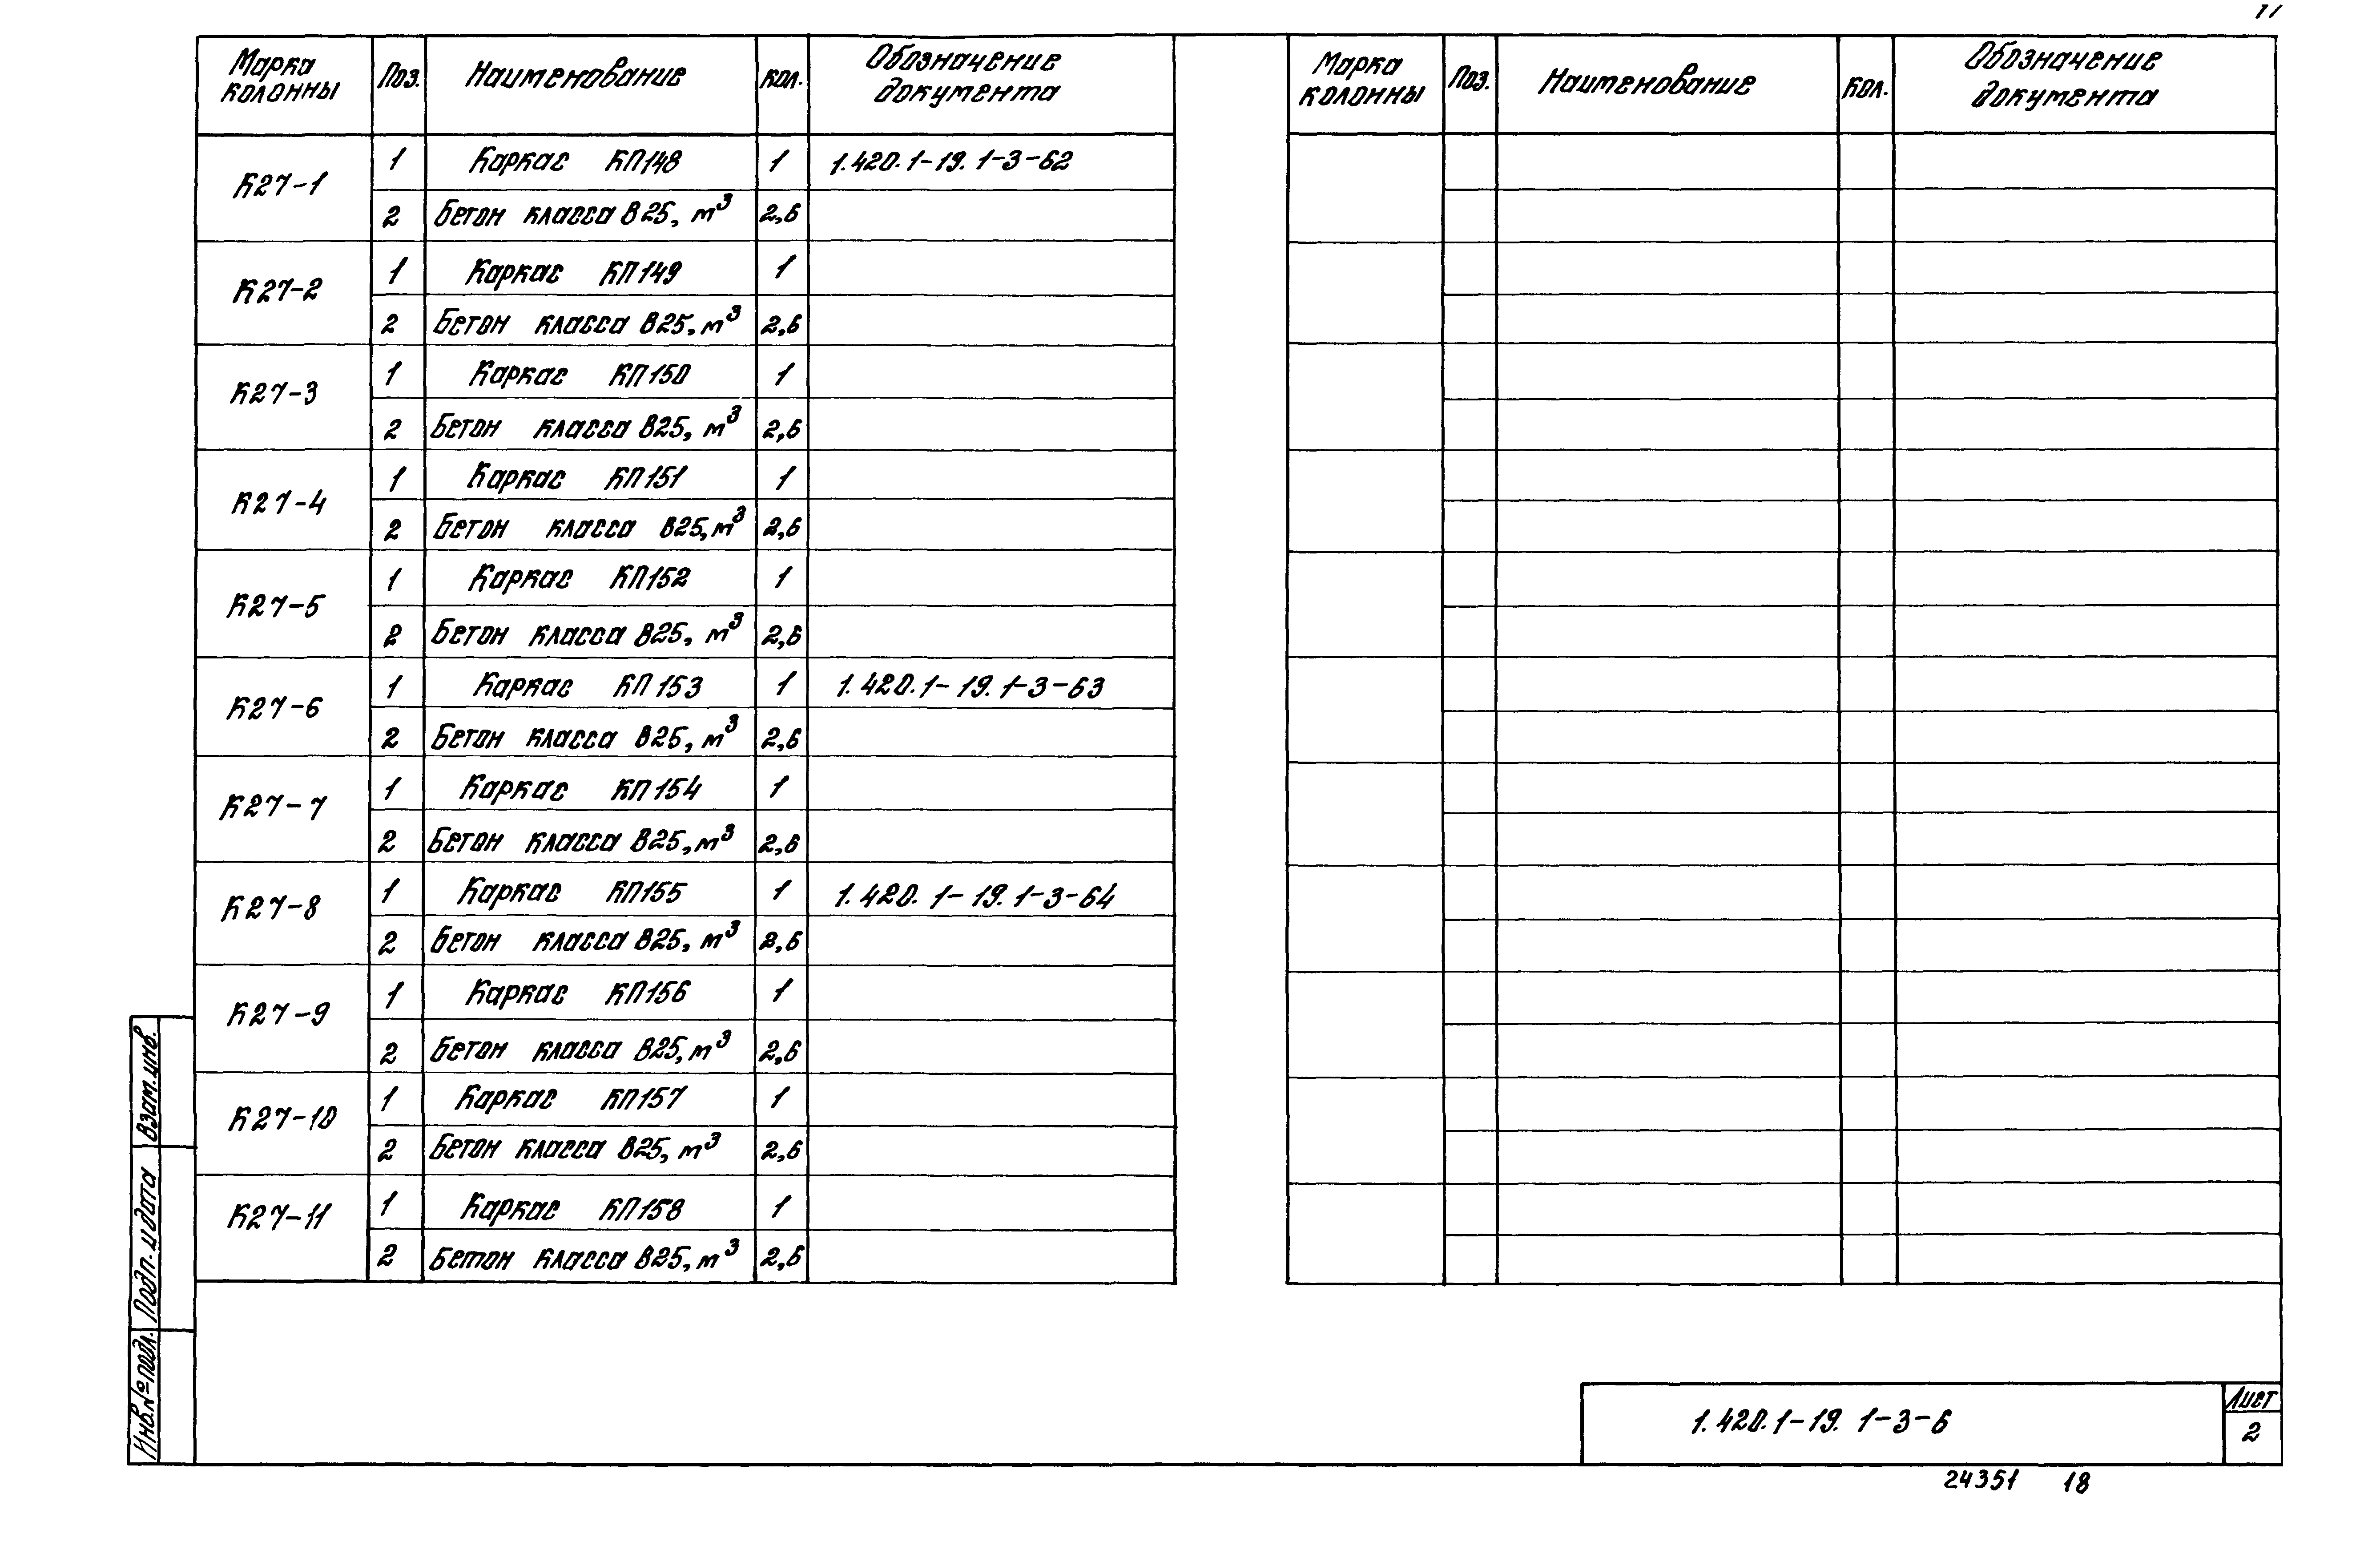 17
Марка колонны Поз. Наименование Кол. Обозначение документа
К27-1 1 Каркас КП148 1 1.420.1-19.1-3-62
2 Бетон класса В25, м³ 2,6
К27-2 1 Каркас КП149 1
2 Бетон класса В25, м³ 2,6
К27-3 1 Каркас КП150 1
2 Бетон класса В25, м³ 2,6
К27-4 1 Каркас КП151 1
2 Бетон класса В25, м³ 2,6
К27-5 1 Каркас КП152 1
2 Бетон класса В25, м³ 2,6
К27-6 1 Каркас КП153 1 1.420.1-19.1-3-63
2 Бетон класса В25, м³ 2,6
К27-7 1 Каркас КП154 1
2 Бетон класса В25, м³ 2,6
К27-8 1 Каркас КП155 1 1.420.1-19.1-3-64
2 Бетон класса В25, м³ 2,6
К27-9 1 Каркас КП156 1
2 Бетон класса В25, м³ 2,6
К27-10 1 Каркас КП157 1
2 Бетон класса В25, м³ 2,6
К27-11 1 Каркас КП158 1
2 Бетон класса В25, м³ 2,6
Марка колонны Поз. Наименование Кол. Обозначение документа
Взам.инв.
Подп. и дата
Инв.№ подл.
1.420.1-19. 1-3-6
Лист
2
24351 18